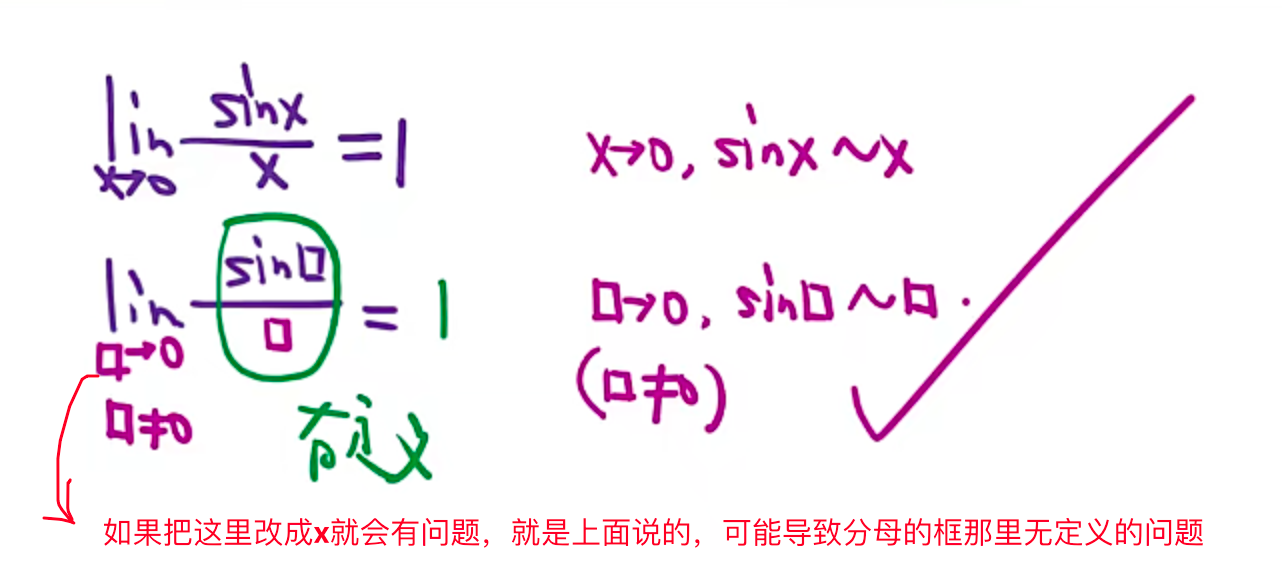 lim sinx/x = 1
x→0
x→0, sinx ~ x
lim sin□/□ = 1
□→0
□≠0
有定义
□→0, sin□ ~ □.
(□≠0)
如果把这里改成x就会有问题，就是上面说的，可能导致分母的框那里无定义的问题